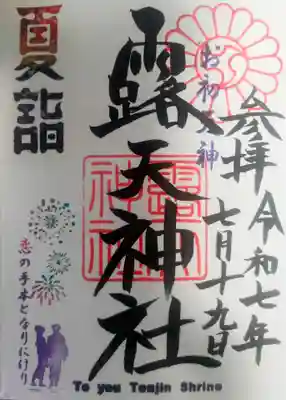 参拝 令和七年
七月十九日
お初天神
露天神社
夏詣
恋の手本となりにけり
To you Tenjin Shrine